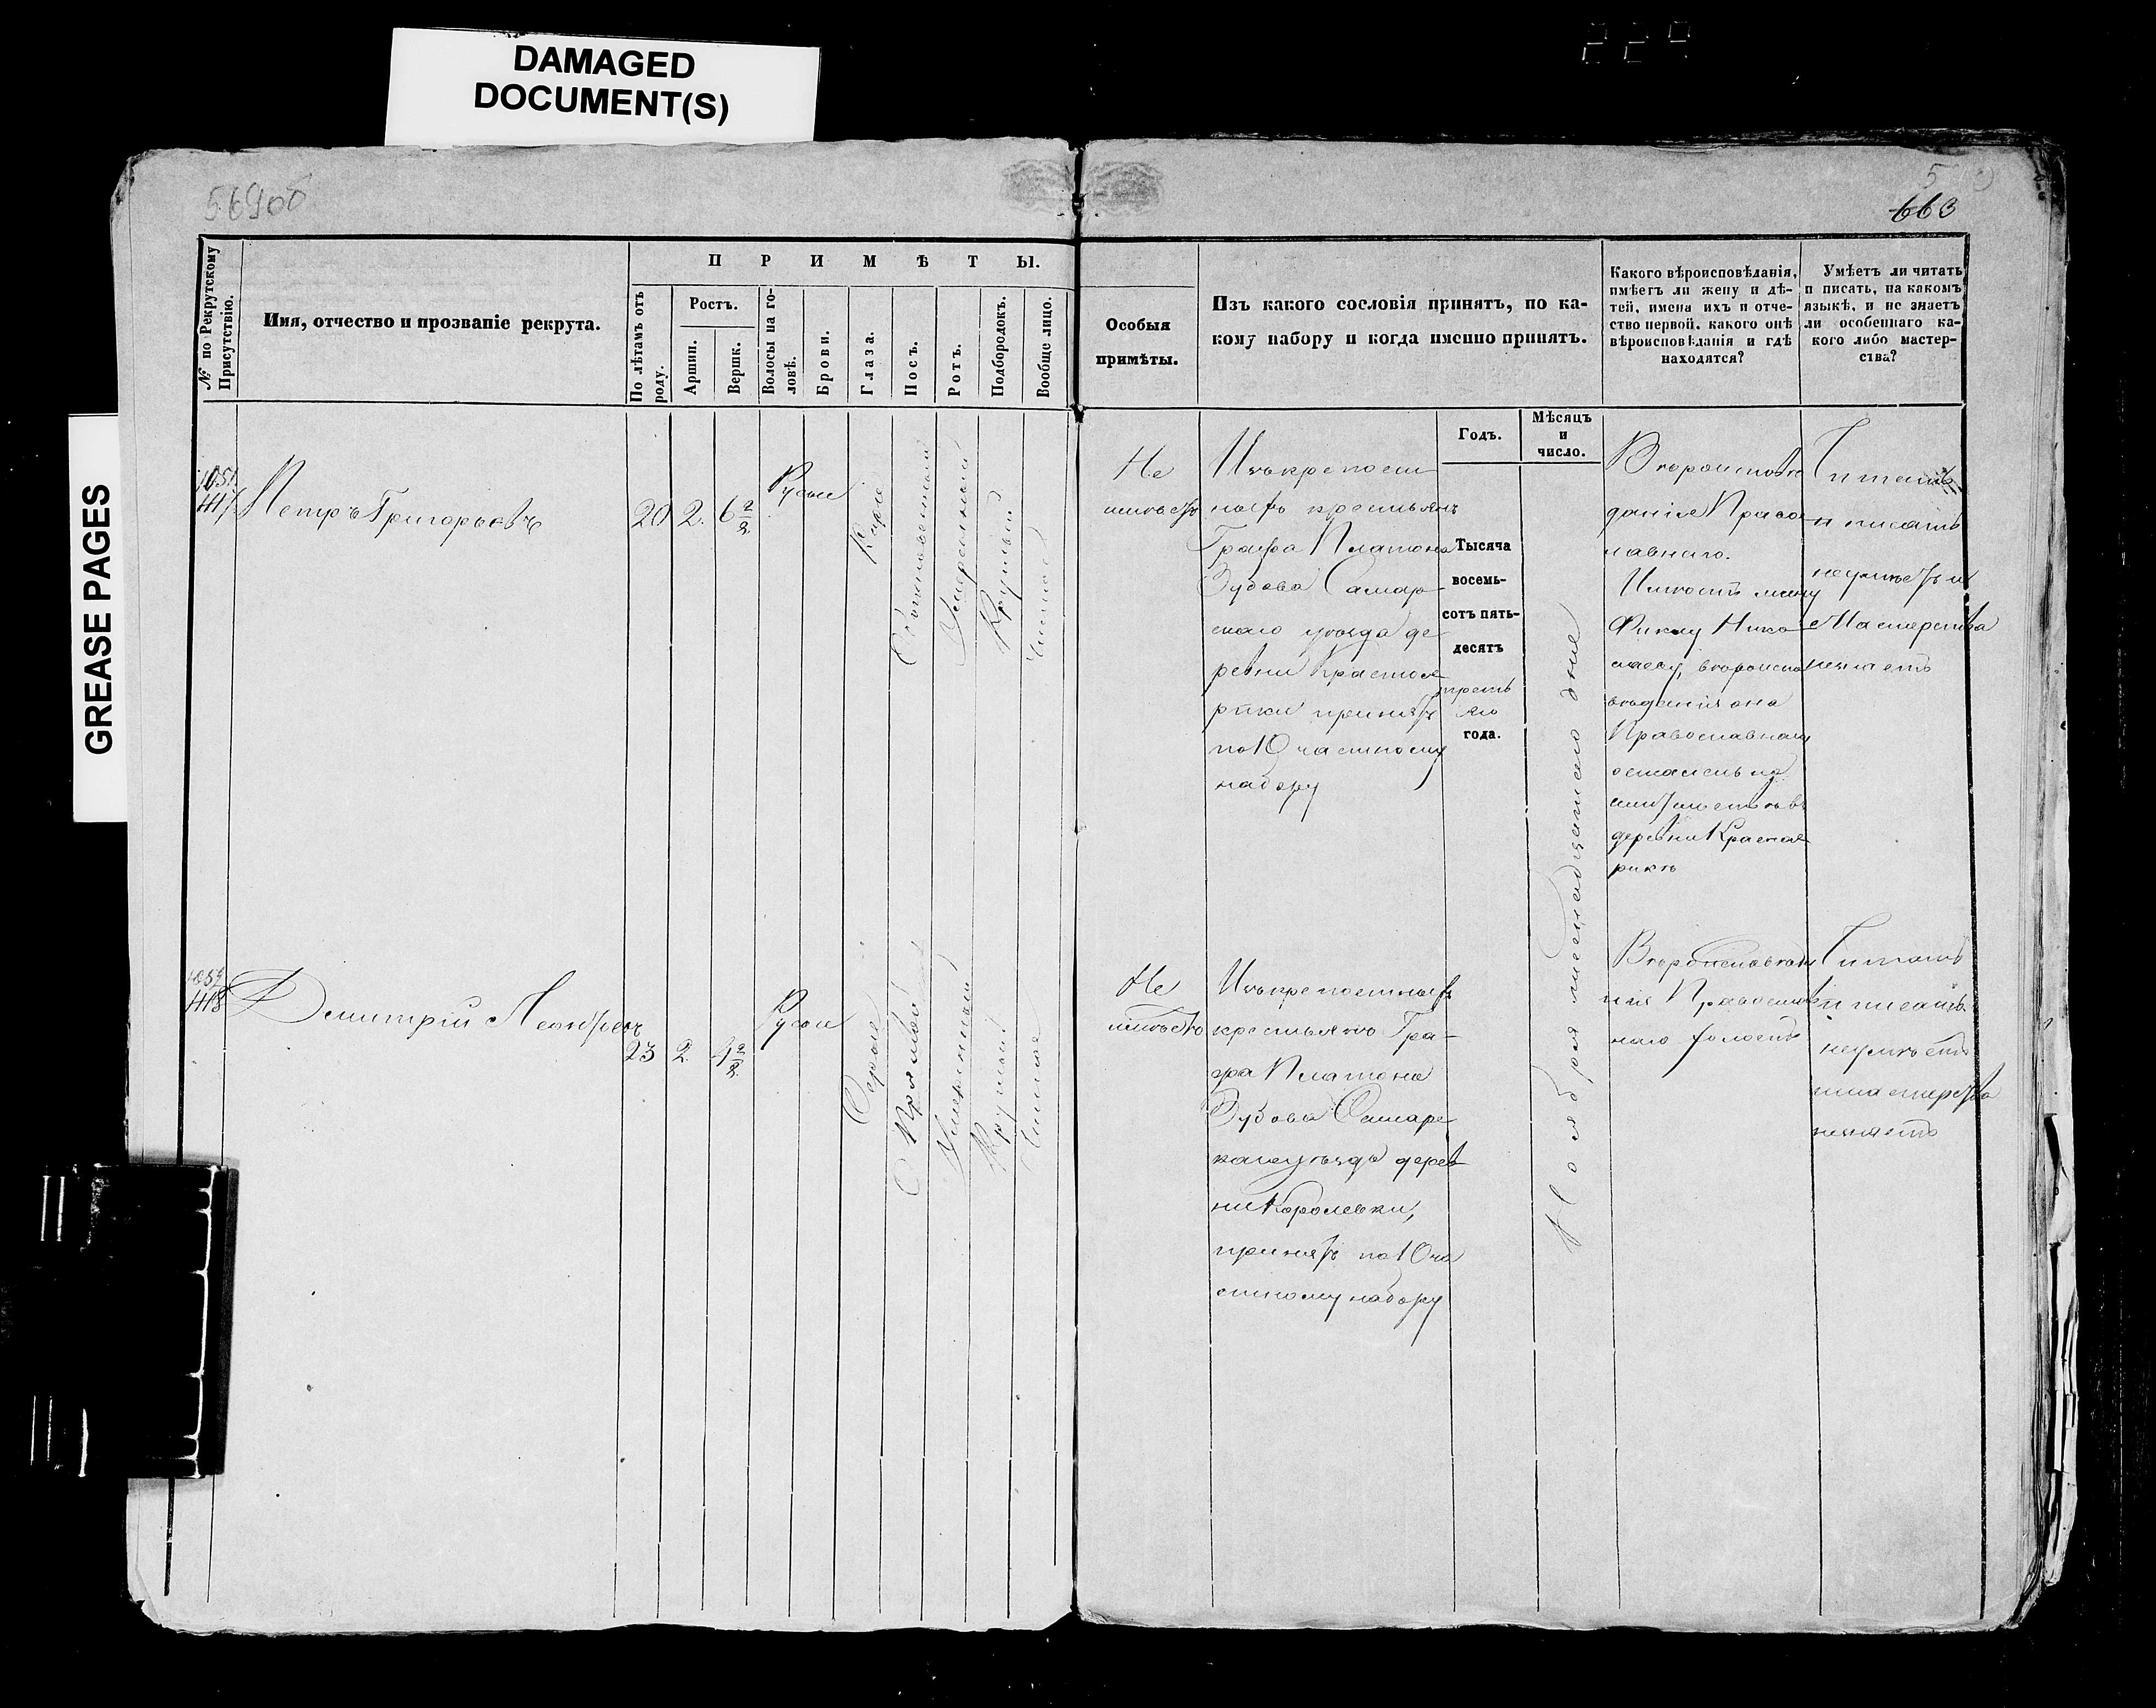 DAMAGED
DOCUMENT(S)
GREASE PAGES
569об
663
№ по Рекрутскому
Присутствію.
Имя, отчество и прозваніе рекрута.
ПРИМѢТЫ.
По лѣтамъ отъ
роду.
Ростъ.
Аршин.
Вершк.
Волосы на го-
ловѣ.
Брови.
Глаза.
Носъ.
Ротъ.
Подбородокъ.
Вообще лицо.
Особыя
примѣты.
Изъ какого сословія принятъ, по ка-
кому набору и когда именно принятъ.
Какого вѣроисповѣданія,
имѣетъ ли жену и дѣ-
тей, имена ихъ и отче-
ство первой, какого онѣ
вѣроисповѣданія и гдѣ
находятся?
Умѣетъ ли читать
и писать, на какомъ
языкѣ, и не знаетъ
ли особеннаго ка-
кого либо мастер-
ства?
Годъ.
Мѣсяцъ
и
число.
1051
417
Петръ Григорьевъ
20
2.
6 2/8
Русые
Карие
Умеренный
Круглый
Чистое
Не
имѣетъ
Изъ крепост
ныхъ крестьянъ
Графа Платона
Зубова Самар
скаго уѣзда де
ревни
принятъ
по 10 частному
набору
Тысяча
восемь-
сотъ пять-
десятъ
треть
яго
года.
Ноября шестнадцатаго дня
Вѣроисповѣ
данія Право
славнаго.
Имѣетъ жену
Фиклу Нико
лаеву, вѣроиспо
вѣданія она
Православнаго
деревни
Читать
и писать
неумѣетъ и
Мастерства
незнаетъ
418
Дмитрій
23
2.
4 2/8
Русые
Серые
Прямой
Умеренный
Круглый
Чистое
Не
имѣетъ
Изъ крепостныхъ
крестьянъ Гра-
фа Платона
Зубова Самарс
каго уѣзда дерев
ни Королевки,
принятъ по 10 ча
стному набору
Вѣроисповѣда
нія Православ
наго холостъ
Читать
и писать
неумѣетъ
и мастерства
незнаетъ